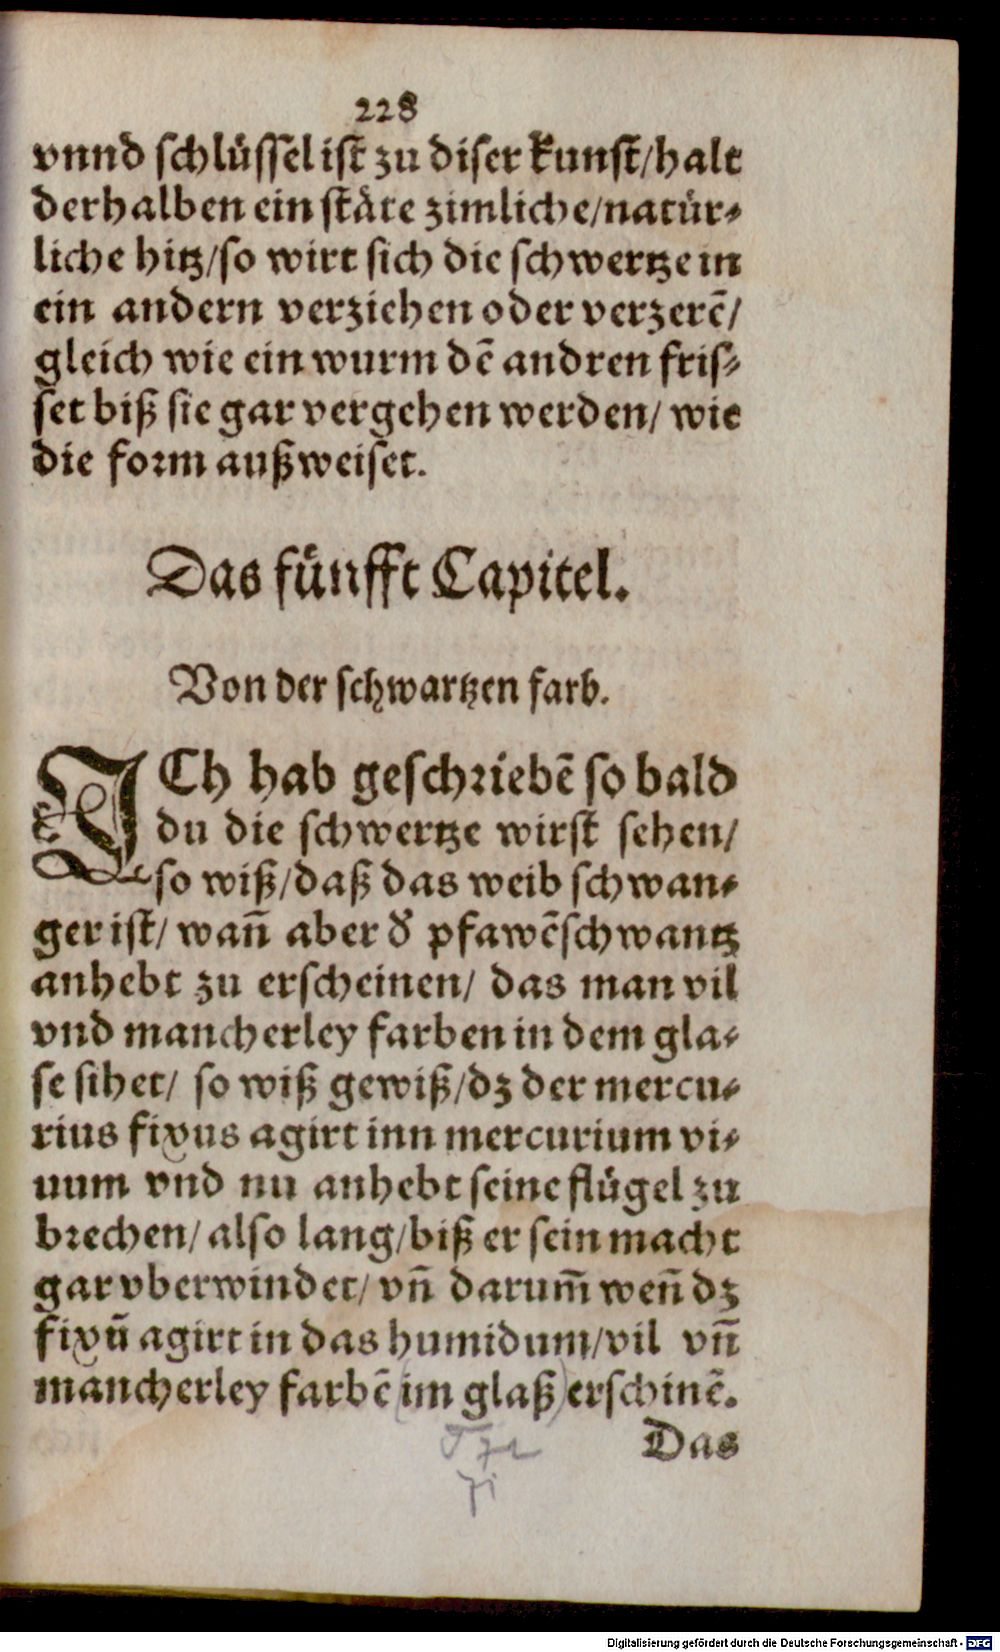 228
vnnd schlüssel ist zu diser kunst/halt
derhalben ein stäte zimliche/natür-
liche hitz/so wirt sich die schwertze in
ein andern verziehen oder verzerẽ/
gleich wie ein wurm dẽ andren fris-
set biß sie gar vergehen werden/ wie
die form außweiset.
Das fünfft Capitel.
Von der schwartzen farb.
ICh hab geschriebẽ so bald
du die schwertze wirst sehen/
so wiß/daß das weib schwan-
ger ist/ wañ aber d̃ pfawẽschwantz
anhebt zu erscheinen/ das man vil
vnd mancherley farben in dem gla-
se sihet/ so wiß gewiß/dz der mercu-
rius fixus agirt inn mercurium vi-
uum vnd nu anhebt seine flügel zu
brechen/ also lang/biß er sein macht
gar vberwindet/ vñ darum̃ weñ dz
fixũ agirt in das humidum/vil vñ
mancherley farbẽ (im glaß) erschinẽ.
Das
Digitalisierung gefördert durch die Deutsche Forschungsgemeinschaft - DFG